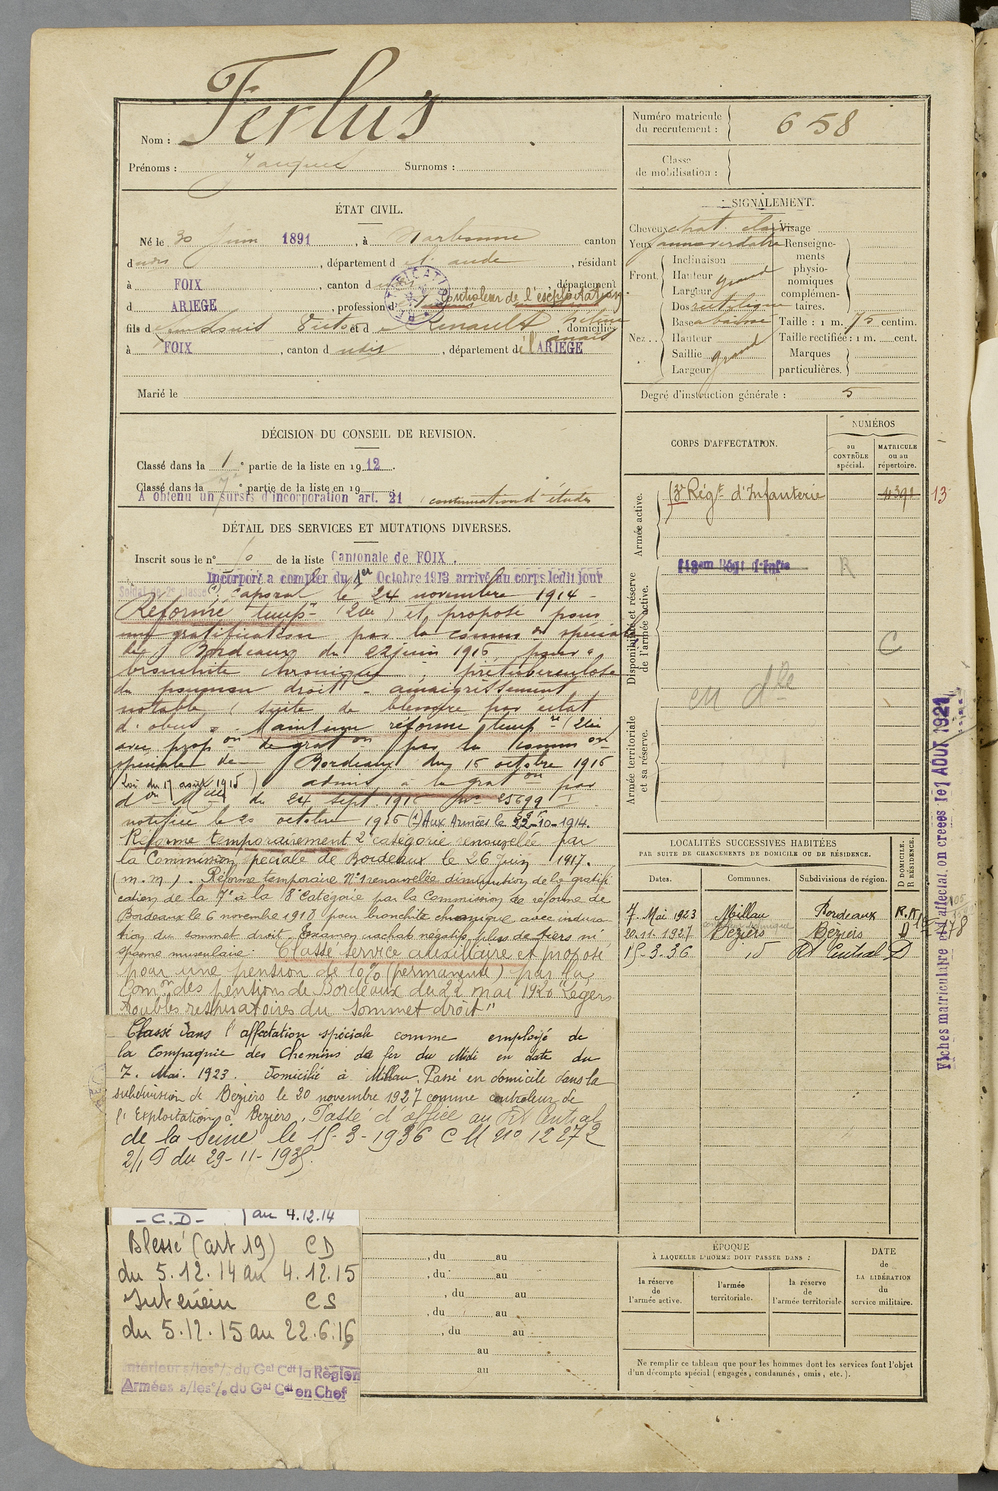 Nom : Ferlus
Prénoms : Jacques Surnoms :
Numéro matricule du recrutement : 658
Classe de mobilisation :
ÉTAT CIVIL.
Né le 30 Juin 1891, à Narbonne canton
dudis, département d l'aude, résidant
à FOIX, canton d département
d ARIEGE, profession d Controleur de l'exploitation
fils d Louis Victor et d Renault, domiciliés
à FOIX, canton d udis, département de l'ARIEGE
Marié le
SIGNALEMENT.
Cheveux chat clair Visage
Yeux jaune verdatre Renseignements physionomiques complémentaires.
Front. Inclinaison
Hauteur grand
Largeur
Nez.. Dos rectiligne
Base abaissé
Hauteur
Saillie grand
Largeur
Taille : 1 m. 75 centim.
Taille rectifiée : 1 m. cent.
Marques particulières.
Degré d'instruction générale : 5
DÉCISION DU CONSEIL DE REVISION.
Classé dans la 1e partie de la liste en 1912.
Classé dans la 7e partie de la liste en 19
A obtenu un sursis d'incorporation art. 21 continuation d'études
DÉTAIL DES SERVICES ET MUTATIONS DIVERSES.
Inscrit sous le n° de la liste Cantonale de FOIX.
Incorporé a compter du 1er Octobre 1913 arrivé au corps ledit jour
Soldat de 2e classe (1) Caporal le 24 novembre 1914 -
Réformé temp- (2e) et proposé pour
une gratification par la common spéciale
de Bordeaux du 22 juin 1916 pour "
bronchite chronique, prétuberculose
du poumon droit - amaigrissement
notable (suite de blessure par éclat
d'obus". Maintenu réformé temp-re (2e)
avec propon de graton par la common
spéciale de Bordeaux du 16 octobre 1916
(Loi du 17 août 1915) admis à la graton par
don Mlle du 24 Sept 1916 No 25699
notifiée le 20 octobre 1916 (1) Aux Armées le 22-10-1914.
Réforme temporairement 2e catégorie renouvelée par
la Commission spéciale de Bordeaux le 26 Juin 1917.
(m.m). Réforme temporaire N°1 renouvelée diminution de la gratifi
cation de la 7e à la 8e Catégorie par la Commission de réforme de
Bordeaux le 6 novembre 1918 pour bronchite chronique avec indura
tion du sommet droit. Examen crachat négatif plus de fiers ni
spasme musculaire. Classé service auxiliaire et proposé
pour une pension de 10% (permanente) par la
Comon des pensions de Bordeaux du 21 mai 1920 "Légers
troubles respiratoires du sommet droit"
Classé dans l'affectation spéciale comme employé de
la Compagnie des Chemins de fer du Midi en date du
7. Mai. 1923. Domicilié à Millau. Passé en domicile dans la
subdivision de Béziers le 20 novembre 1927 comme controleur de
l'Exploitation à Béziers. Passé d'office au Rt Central
de la Seine le 15-3-1936 C M n° 12272
2/1 D du 29-11-1935.
- C.D - au 4.12.14
Blessé (art 19) CD
du 5.12.14 au 4.12.15
Intérieur CS
du 5.12.15 au 22.6.16
Intérieur s/les o/ du Gal Cdt la Région
Armées s/les o/ du Gal Cdt en Chef
, du au
, du au
, du au
, du au
, du au
au
au
CORPS D'AFFECTATION.
NUMÉROS
au CONTRÔLE spécial.
MATRICULE ou au répertoire.
Armée active.
Régt d'Infanterie
13
113em Régt d'Infie
R
Disponibilité et réserve de l'armée active.
C
Armée territoriale et sa réserve.
LOCALITÉS SUCCESSIVES HABITÉES
PAR SUITE DE CHANGEMENTS DE DOMICILE OU DE RÉSIDENCE.
Dates. Communes. Subdivisions de région. D DOMICILE. R RÉSIDENCE.
7. Mai 1923 Millau Bordeaux R.
20.11.1927 Béziers Béziers D
15-3-36 id Rt Central D
ÉPOQUE
À LAQUELLE L'HOMME DOIT PASSER DANS :
la réserve de l'armée active.
l'armée territoriale.
la réserve de l'armée territoriale
DATE de LA LIBÉRATION du service militaire.
Ne remplir ce tableau que pour les hommes dont les services font l'objet
d'un décompte spécial (engagés, condamnés, omis, etc.).
Fiches matriculaire et d'affectation créées le 1 AOUT 1921